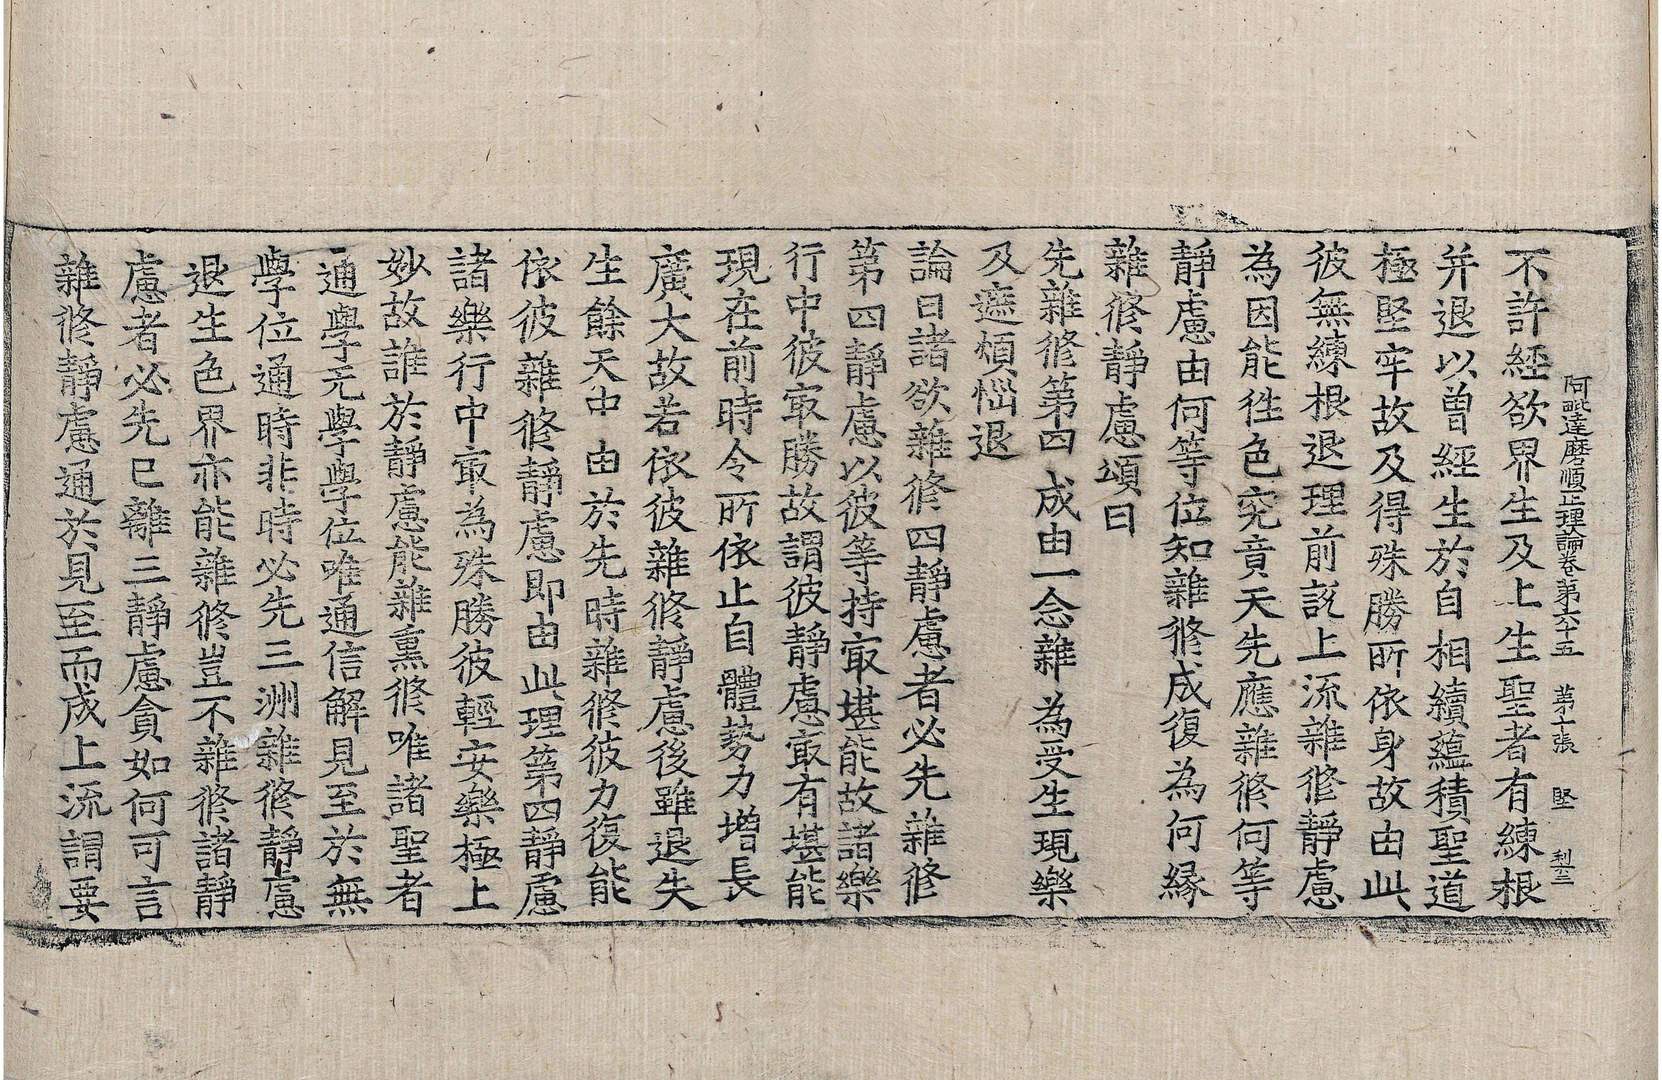 阿毗達磨順正理論卷第六十五　第十張　堅　利三
不許經欲界生及上生聖者有練根
并退以曾經生於自相續蘊積聖道
極堅牢故及得殊勝所依身故由此
彼無練根退理前說上流雜修靜慮
為因能往色究竟天先應雜修何等
靜慮由何等位知雜修成復為何緣
雜修靜慮頌曰
先雜修第四　成由一念雜　為受生現樂
及遮煩惱退
論曰諸欲雜修四靜慮者必先雜修
第四靜慮以彼等持㝡堪能故諸樂
行中彼㝡勝故謂彼靜慮㝡有堪能
現在前時令所依止自體勢力增長
廣大故若依彼雜修靜慮後雖退失
生餘天中由於先時雜修彼力復能
依彼雜修靜慮即由此理第四靜慮
諸樂行中㝡為殊勝彼輕安樂極上
妙故誰於靜慮能雜熏修唯諸聖者
通學无學學位唯通信解見至於無
學位通時非時必先三洲雜修靜慮
退生色界亦能雜修豈不雜修諸靜
慮者必先已離三靜慮貪如何可言
雜修靜慮通於見至而成上流謂要